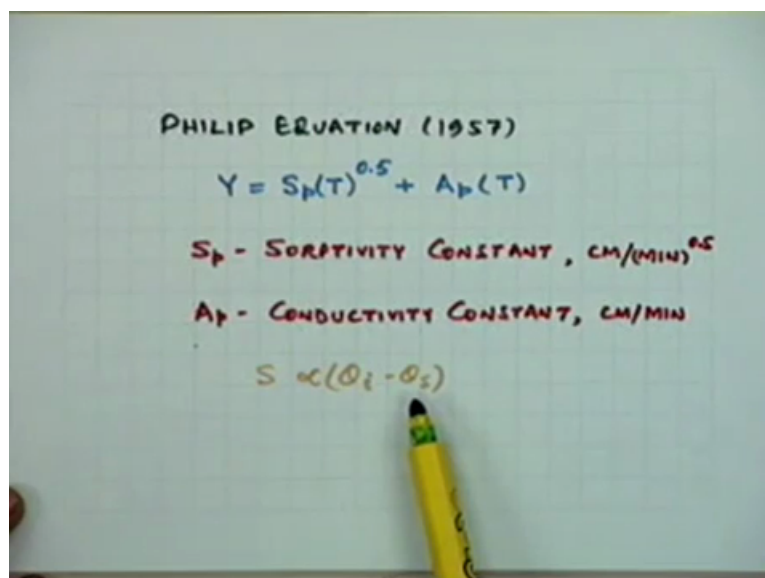 PHILIP EQUATION (1957)
Y = Sp(T)^0.5 + Ap(T)
Sp - SORPTIVITY CONSTANT, CM/(MIN)^0.5
Ap - CONDUCTIVITY CONSTANT, CM/MIN
S ∝(θi - θs)